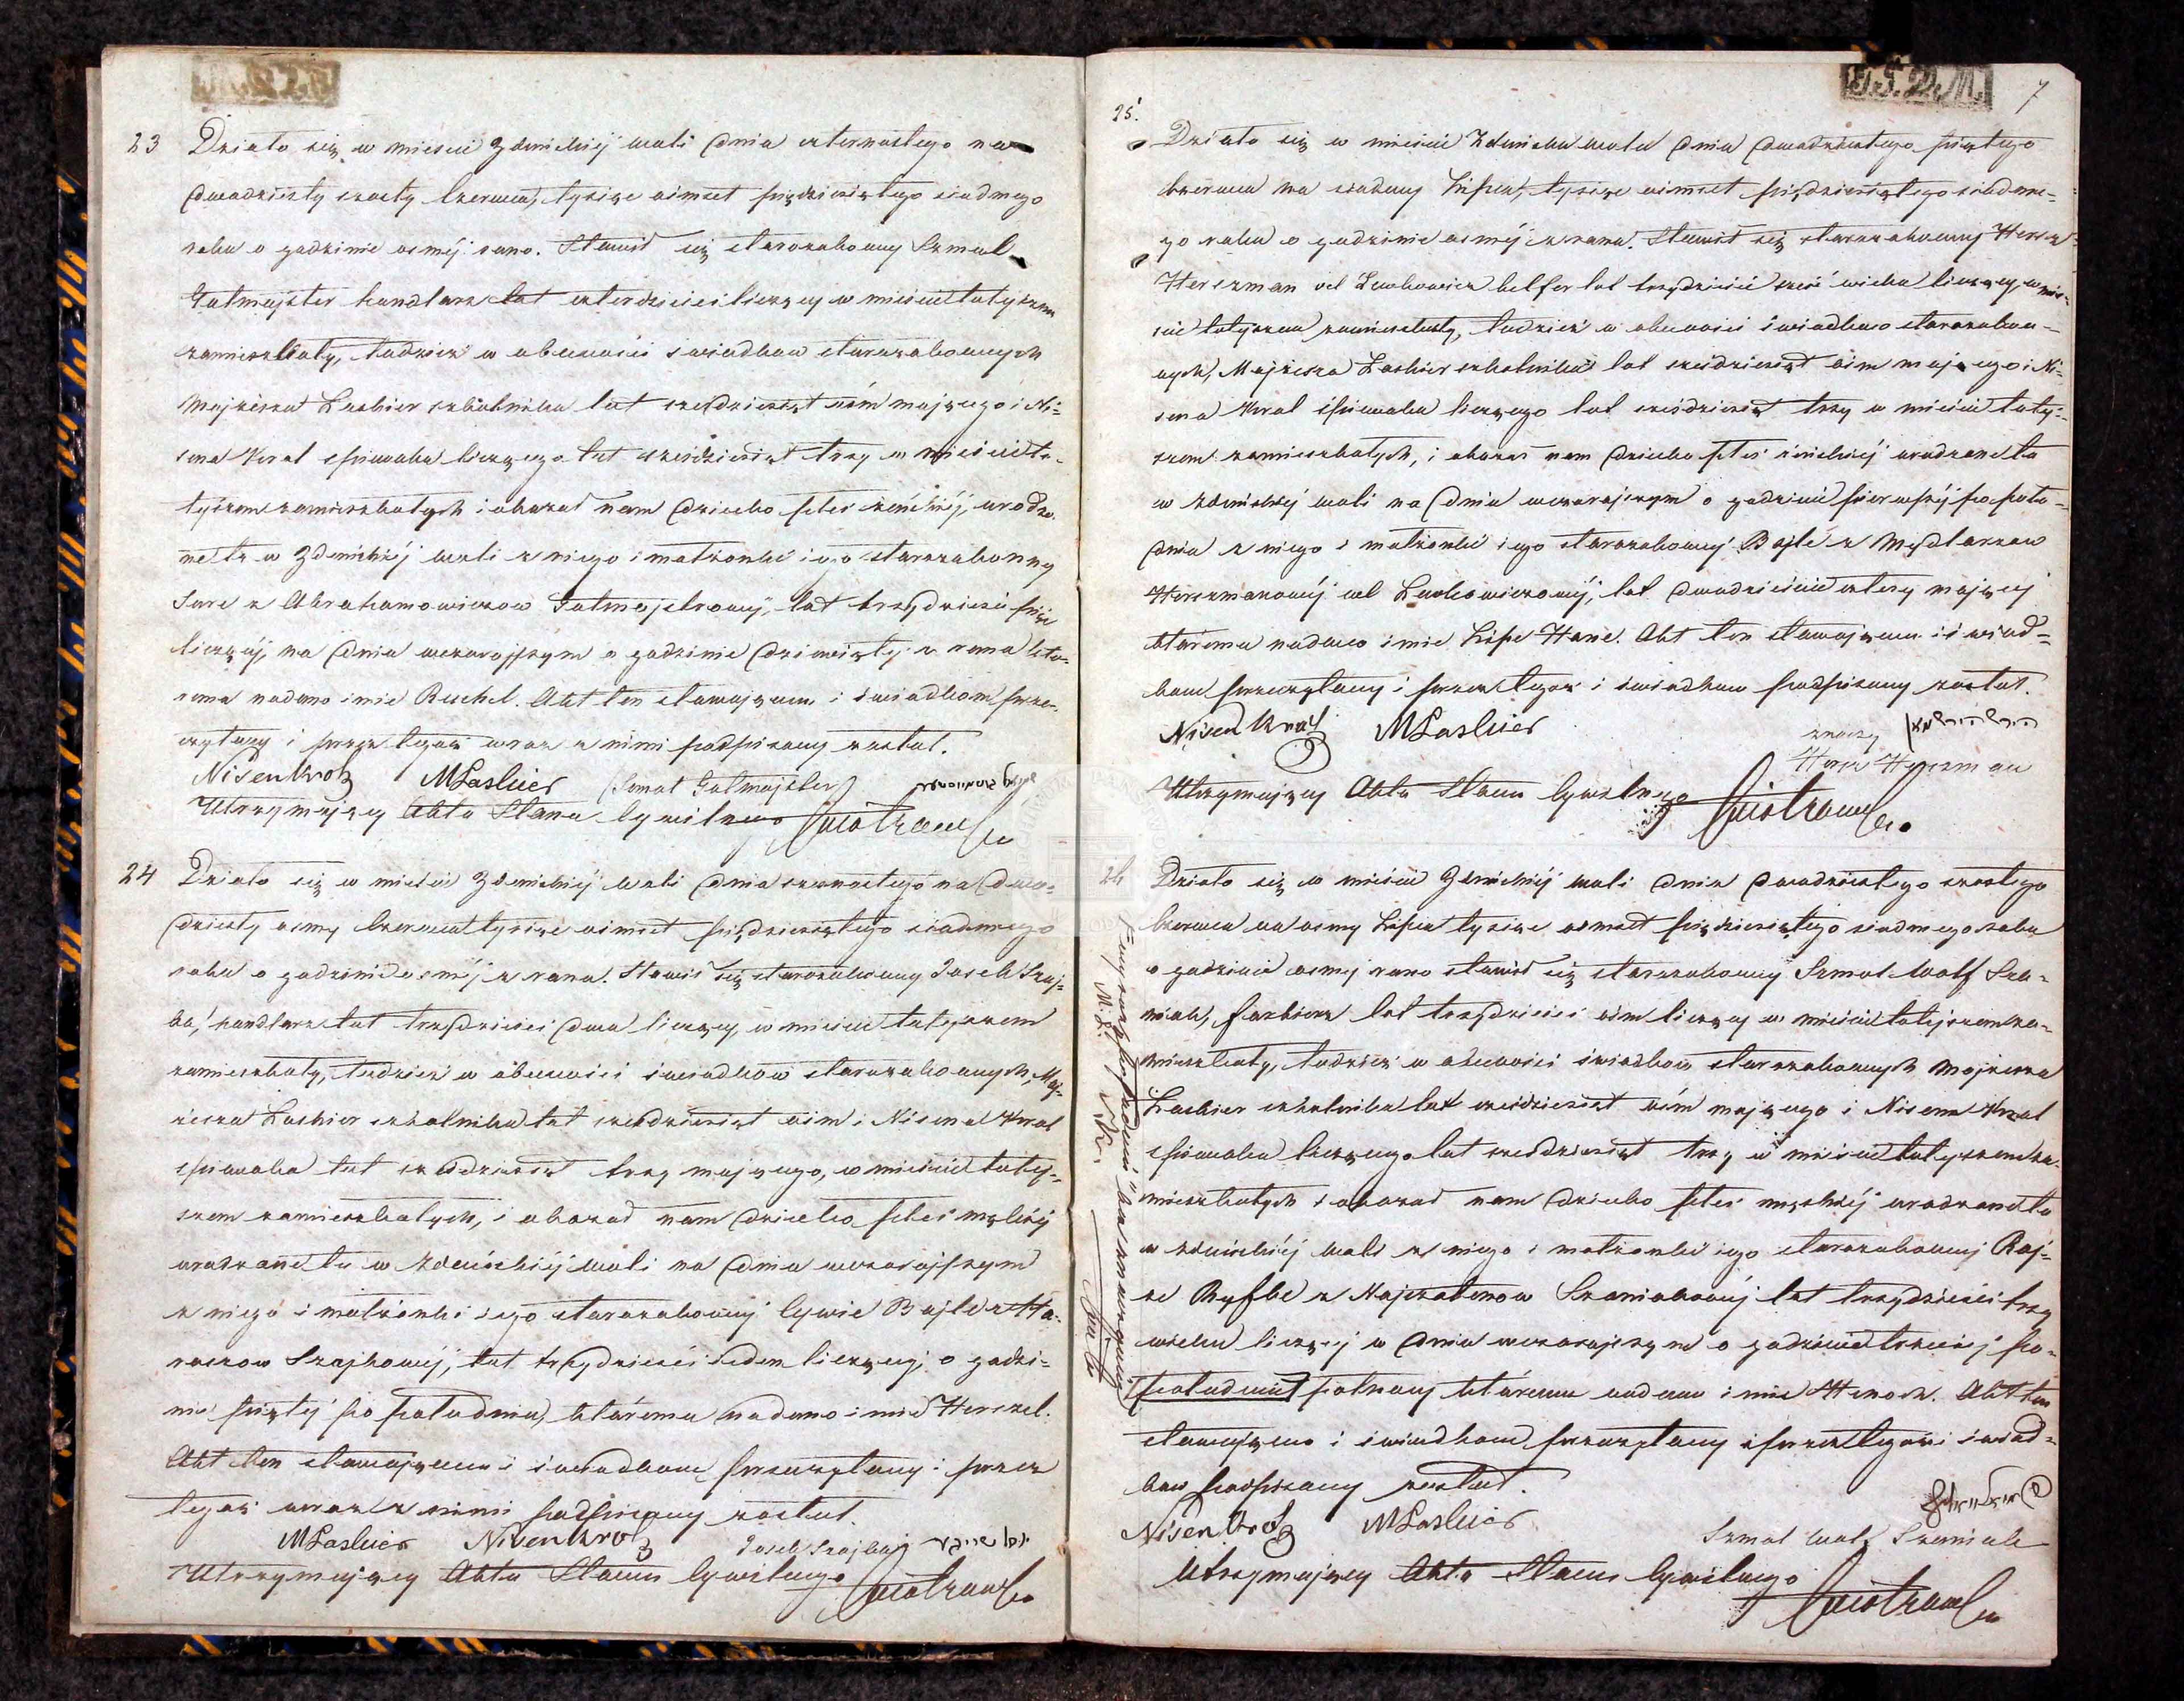 23
Działo się w mieście Zduńskiéj woli dnia czternastego na
dwudziesty szosty Czerwca, tysiąc ośmset pięździesiątego siódmego
roku o godzinie osméj rano. Stawił się starozakonny Szmul
Gutmajster handlarz lat czterdzieści liczący w mieście tutejszem
zamieszkały, tudzież w obecności świadków starozakonnych
Mojżesza Laskier szkolnika lat sześdziesiąt ośm mającego i Ni=
sena Krol śpiewaka liczącego lat sześdziesiąt trzy w mieście tu=
tejszem zamieszkałych i okazał nam dziecko płci żeńskiéj, urodzo=
ne tu w Zduńskiéj woli z niego i małżonki jego starozakonny
Sure z Abrahamowiczow Gutmajstrowéj, lat trzydzieści pięć
liczącéj, na dniu wczorajszym o godzinie dziewiąty z rana któ=
remu nadano imie Ruchel. Akt ten stawającemu i świadkom prze=
czytany i przez tegoż wraz z nimi podpisany został.
Nisen Krol MLaskier Szmul Gutmajster
Utrzymujący Akta Stanu Cywilnego
24
Działo się w mieście Zduńskiéj Woli dnia szesnastego na dwu=
dziesty osmy Czerwca tysiąc ośmset pięździesiątego siódmego
roku o godzinie osméj z rana. Stawił się starozakonny Josek Szaj=
ka, handlarz lat trzydzieści dwa liczący, w mieście tutejszem
zamieszkały, tudzież w obecności świadków starozakonnych, Moj=
żesza Laskier szkolnika lat sześdziesiąt ośm i Nisena Krol
śpiewaka lat sześdziesiąt trzy mającego, w mieście tutej=
szem zamieszkałych, i okazał nam dziecko płci męzkiéj
urodzone tu w Zduńskiéj woli na dniu wczorajszym
z niego i małżonki jego starozakonnéj Cywie Bajle z Ha=
raczow Szajkowéj, lat trzydzieści jeden liczącéj, o godzi=
nie piątéj po południu, któremu nadano imie Herszel.
Akt ten stawającemu i świadkom przeczytany i przez
tegoż wraz z nimi podpisany został.
MLaskier Nisen Krol Josek Szajka
Utrzymujący Akta Stanu Cywilnego
7
25.
Działo się w mieście Zduńska wola dnia dwudziestego piątego
Czerwca na siódmy Lipca, tysiąc ośmset pięździesiątego siódme=
go roku o godzinie osméj z rana. Stawił się starozakonny Hersz
Herszman vel Lewkowicz belfer lat trzydzieści sześć wieku liczący, w mie=
ście tutejszem zamieszkały, tudzież w obecności świadków starozakon=
nych, Mojżesza Laskier szkolnika lat sześdziesiąt ośm mającego i Ni=
sena Krol śpiewaka liczącego lat sześdziesiąt trzy w mieście tutej=
szem zamieszkałych, i okazał nam dziecko płci żeńskiéj urodzone tu
w Zduńskiéj woli na dniu wczorajszym o godzinie pierwszéj po poło=
dniu z niego i małżonki jego starozakonnéj Bajle z Mydlarzow
Herszmanowéj vel Lewkowiczowéj, lat dwadzieście cztery mającéj
któremu nadano imie Lipe Hane. Akt ten stawającemu i świad=
kom przeczytany i przez tegoż i świadków podpisany został.
Nisen Krol MLaskier
znaczy
Hersz Herszman
Utrzymujący Akta Stanu Cywilnego
26
Działo się w mieście Zduńskiéj woli dnia dwudziestego szostego
Czerwca na osmy Lipca tysiąc ośmset pięździesiątego siódmego roku
o godzinie osméj rano stawił się starozakonny Szmul Wolf Sza=
niak, farbierz lat trzydzieści ośm liczący w mieście tutejszem za=
mieszkały, tudzież w obecności świadków starozakonnych Mojżesza
Laskier szkolnika lat sześdziesiąt ośm mającego i Nisena Krol
śpiewaka liczącego lat sześdziesiąt trzy w mieście tutejszem za=
mieszkałych i okazał nam dziecko płci męzkiéj urodzone tu
w Zduńskiéj woli z niego i małżonki jego starozakonnéj Raj=
ze Ryfke z Szaniakowéj lat trzydzieści trzy
wieku liczącéj w dniu wczorajszym o godzinie trzeciéj po=
południu któremu nadano imie Henoch. Akt ten
stawającemu i świadkom przeczytany i przez tegoż i świad=
kow podpisany został.
Nisen Krol MLaskier
Szmul Wolf Szaniak
Utrzymujący Akta Stanu Cywilnego